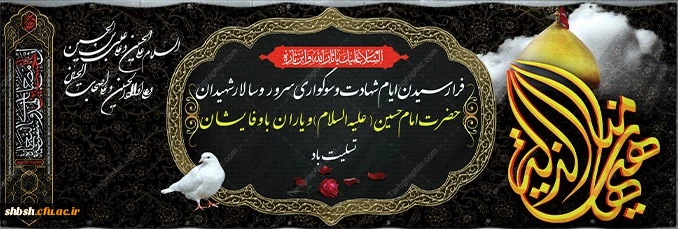 السلام علیک یا ثارالله وابن ثاره
فرارسیدن ایام شهادت و سوگواری سرور و سالار شهیدان
حضرت امام حسین (علیه السلام) و یاران باوفایشان
تسلیت باد
السلام علی الحسین و علی علی بن الحسین
و علی اولاد الحسین و علی اصحاب الحسین
هیهات منا الذلة
shbsh.cfu.ac.ir